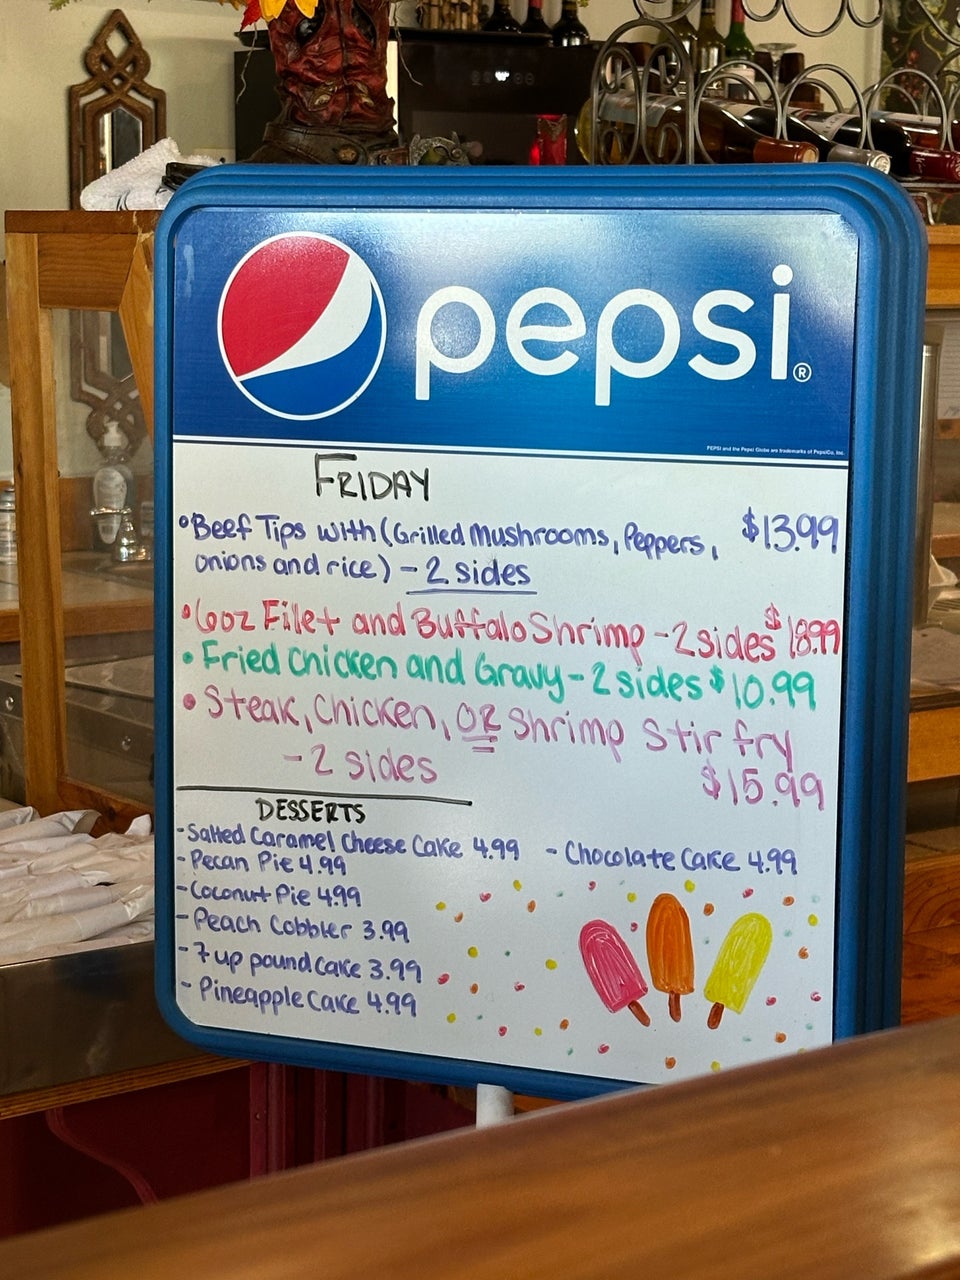 pepsi®
PEPSI and the Pepsi Globe are trademarks of PepsiCo, Inc.
FRIDAY
•Beef Tips with (Grilled Mushrooms, Peppers, $13.99
onions and rice) - 2 sides
•6oz Filet and Buffalo Shrimp - 2 sides $18.99
• Fried chicken and Gravy - 2 sides $10.99
• Steak, Chicken, OR Shrimp Stir fry
- 2 sides $15.99
DESSERTS
- Salted Caramel Cheese Cake 4.99 - Chocolate Cake 4.99
- Pecan Pie 4.99
- Coconut Pie 4.99
- Peach Cobbler 3.99
- 7 up pound Cake 3.99
- Pineapple Cake 4.99